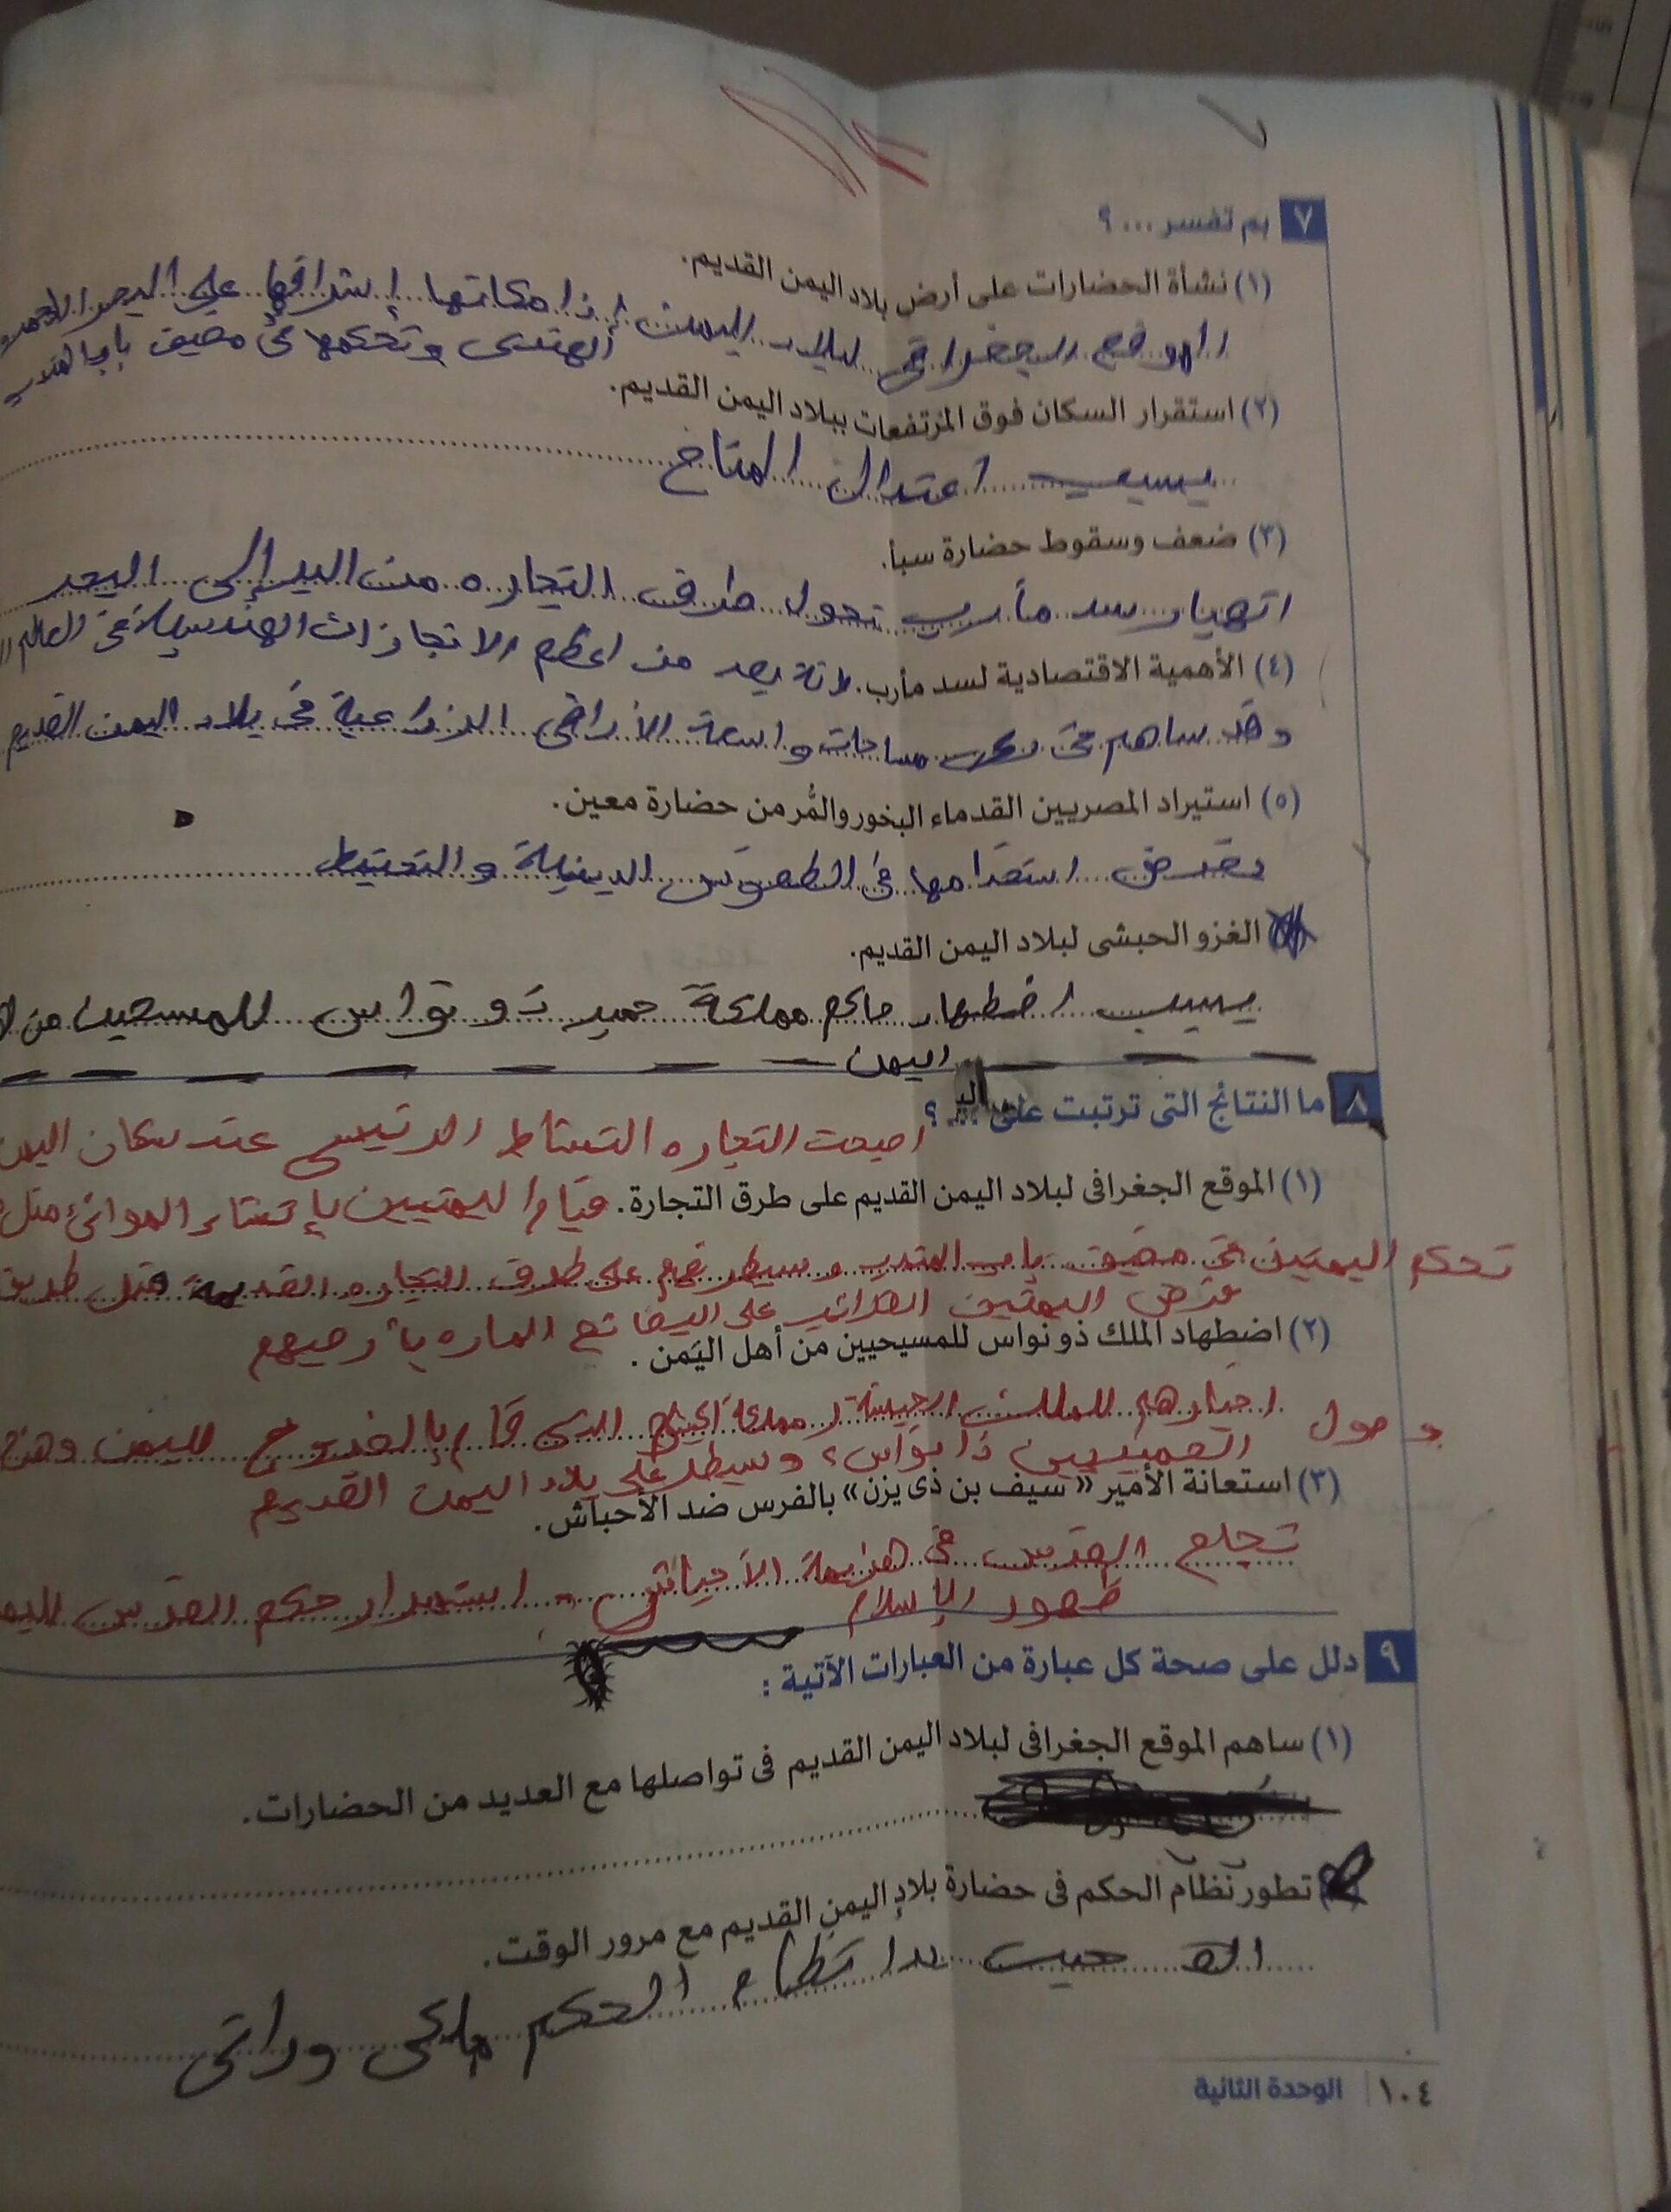 ٧ بم تفسر ... ؟
(١) نشأة الحضارات على أرض بلاد اليمن القديم.
الموقع الجغرافى لبلاد اليمن إشرافها على البحر الأحمر
الهندى وتحكمها فى مضيق باب المندب
(٢) استقرار السكان فوق المرتفعات ببلاد اليمن القديم.
بسبب اعتدال المناخ
(٣) ضعف وسقوط حضارة سبأ.
انهيار سد مأرب تحول طرق التجاره من البر إلى البحر
(٤) الأهمية الاقتصادية لسد مأرب. لانة يعد من اعظم الانجازات الهندسية فى العالم
وقد ساهم فى رى مساحات واسعة الأراضى الزراعية فى بلاد اليمن القديم
(٥) استيراد المصريين القدماء البخور والمُر من حضارة معين.
بغرض استخدامها فى الطقوس الدينية والتحنيط
الغزو الحبشى لبلاد اليمن القديم.
بسبب اضطهاد حاكم مملكة حمير ذو نواس للمسحين من
اليمن
٨ ما النتائج التى ترتبت على ... ؟
اصبحت التجاره النشاط الرئيسى عند سكان اليمن
(١) الموقع الجغرافى لبلاد اليمن القديم على طرق التجارة. قيام اليمنيين بإنشاء الموانئ مثل
تحكم اليمنين فى مضيق باب المندب وسيطرتهم على طرق التجاره القديمة مثل طريق
فرض اليمنين الضرائب على البضائع الماره بأرضيهم
(٢) اضطهاد الملك ذو نواس للمسيحيين من أهل اليمن .
وصول اخبارهم للملك الحبشة مملكة الذى قام بالخروج لليمن وهزم
الحميريين ذا نواس وسيطر على بلاد اليمن القديم
(٣) استعانة الأمير «سيف بن ذى يزن» بالفرس ضد الأحباش.
نجاح الفرس فى هزيمة الأحباش - استمرار حكم الفرس لليمن
ظهور الإسلام
٩ دلل على صحة كل عبارة من العبارات الآتية :
(١) ساهم الموقع الجغرافى لبلاد اليمن القديم فى تواصلها مع العديد من الحضارات.
تطور نظام الحكم فى حضارة بلاد اليمن القديم مع مرور الوقت.
حيث بدا نظام الحكم ملكى وراثى
١٠٤ | الوحدة الثانية